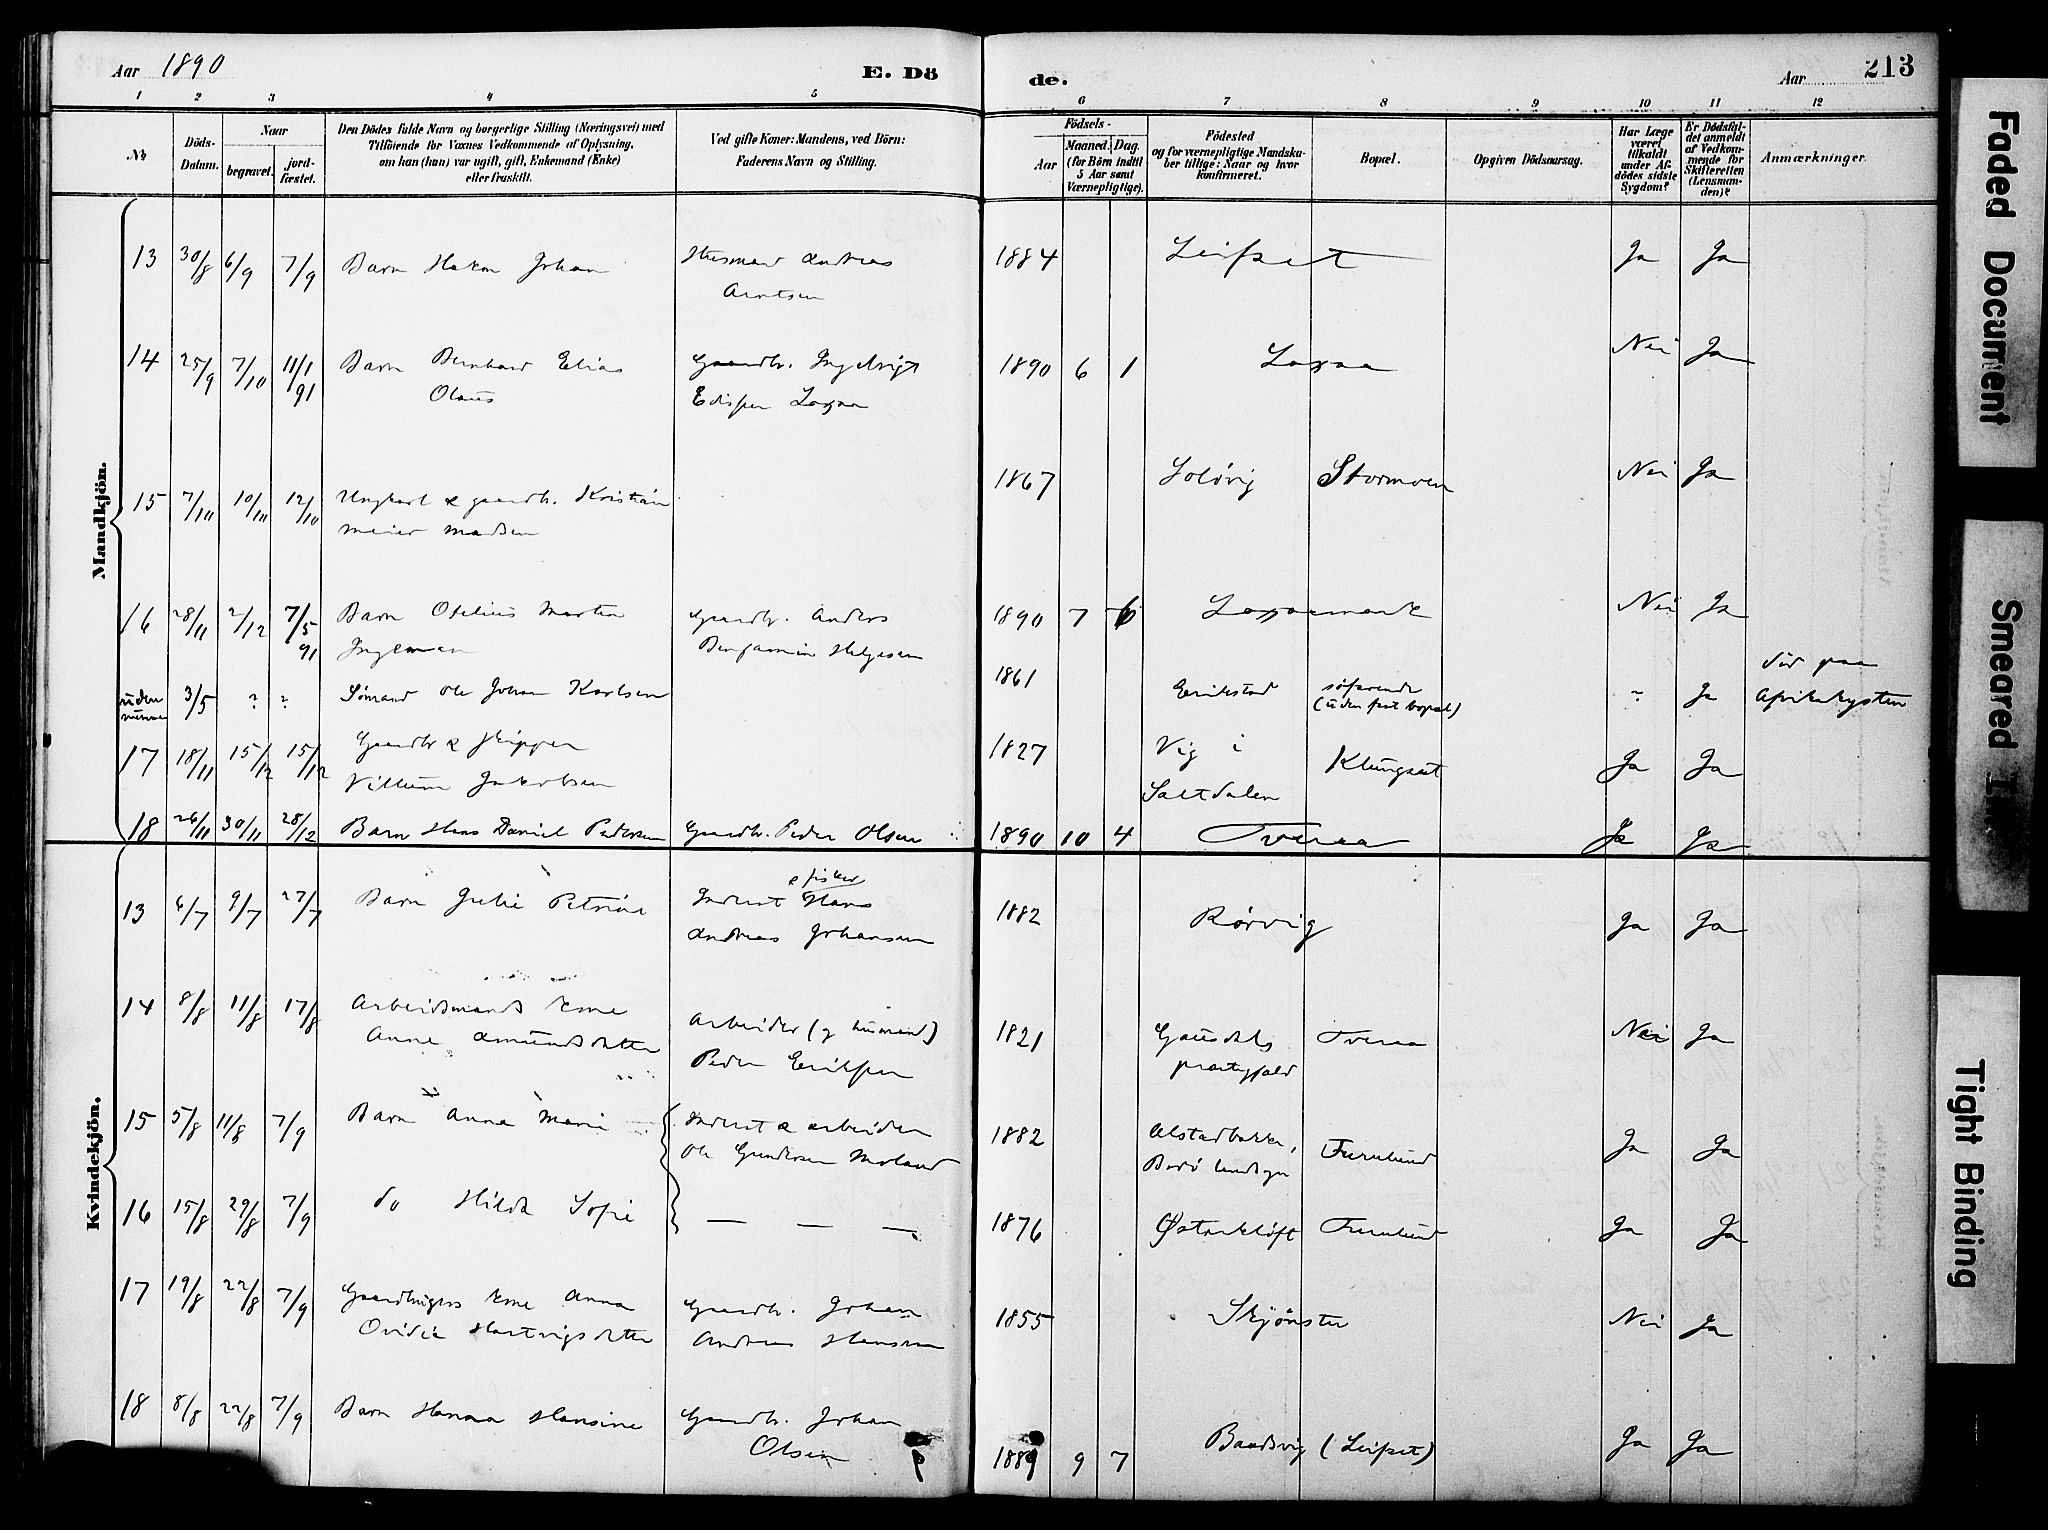 Aar 1890
E. Dö
de.
Aar
213
1 2 3 4 5 6 7 8 9 10 11 12
No
Döds-Datum.
Naar
begravet.
jord-fæstet.
Den Dödes fulde Navn og borgerlige Stilling (Næringsvei) med
Tilföiende for Voxnes Vedkommende af Oplysning,
om han (hun) var ugift, gift, Enkemand (Enke)
eller fraskilt.
Ved gifte Koner: Mandens, ved Börn:
Faderens Navn og Stilling.
Födsels-
Aar
Maaned. Dag.
(for Börn indtil
5 Aar samt
Værnepligtige).
Födested
og for værnepligtige Mandska-
ber tillige: Naar og hvor
konfirmeret.
Bopæl.
Opgiven Dödsaarsag.
Har Læge
været
tilkaldt
under Af-
dödes sidste
Sygdom?
Er Dödsfal-
det anmeldt
af Vedkom-
mende for
Skifteretten
(Lensman-
den)?
Anmærkninger.
Mandkjön.
13 30/8 6/9 7/9 Barn Hakon Johan Husmand Andreas 1884 Leifset Ja Ja
Arntsen
14 25/9 7/10 11/1 91 Barn Bernhard Elias Gaardbr. Ingebrigt 1890 6 1 Laxaa Nei Ja
Olaus Edisen Laxaa
15 7/10 10/10 12/10 Ungkarl & gaardbr. Kristian 1867 Solövig Stormoen Nei Ja
Meier Madsen
16 28/11 2/12 7/5 91 Barn Otelius Martin Gaardbr. Anders 1890 7 6 Laxaamark Nei Ja
Ingeman Benjamin Helgesen
uden nummer 3/5 ? ? Sömand Ole Johan Karlsen 1861 Erikstad söfarende ? Ja död paa
(uden fast bopæl) Afrikakysten
17 18/11 15/12 15/12 Gaardbr & skipper 1827 Vig i Klungset Ja Ja
Villum Jakobsen Saltdalen
18 26/11 30/11 28/12 Barn Hans Daniel Pedersen Gaardbr. Peder Olsen 1890 10 4 Tveraa Ja Ja
Kvindekjön.
13 6/7 9/7 27/7 Barn Julie Petrine Inderst & fisker Hans 1882 Rörvig Ja Ja
Andreas Johansen
14 8/8 11/8 17/8 Arbeidsmands kone Arbeider (g husmand) 1821 Gausdals Tveraa Nei Ja
Anne Amundsdatter Peder Eriksen præstegjæld
15 5/8 11/8 7/9 Barn Anna Marie Inderst & arbeider 1882 Alstadbakke, Furulund Ja Ja
Ole Gundersen Moland Bodö landsogn
16 15/8 29/8 7/9 do Hilda Sofie — — — 1876 Österklöft Furulund Ja Ja
17 19/8 22/8 7/9 Gaardbrugers kone Anna Gaardbr. Johan 1855 Skjönstu Nei Ja
Ovidia Hartvigsdatter Andreas Hansen
18 8/8 22/8 7/9 Barn Hanna Hansine Gaardbr. Johan 1889 9 7 Baadsvig (Leifset) Ja Ja
Olsen
Faded Document
Smeared Ink
Tight Binding